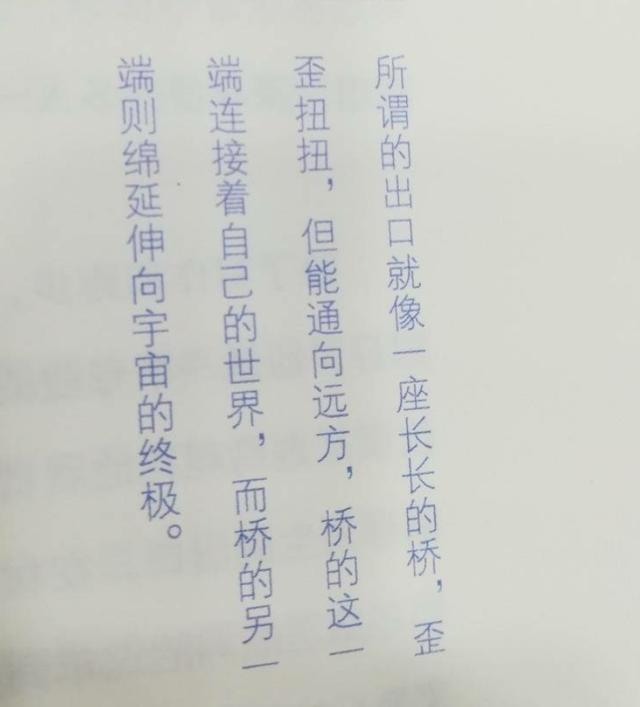 所谓的出口就像一座长长的桥，歪
歪扭扭，但能通向远方，桥的这一
端连接着自己的世界，而桥的另一
端则绵延伸向宇宙的终极。